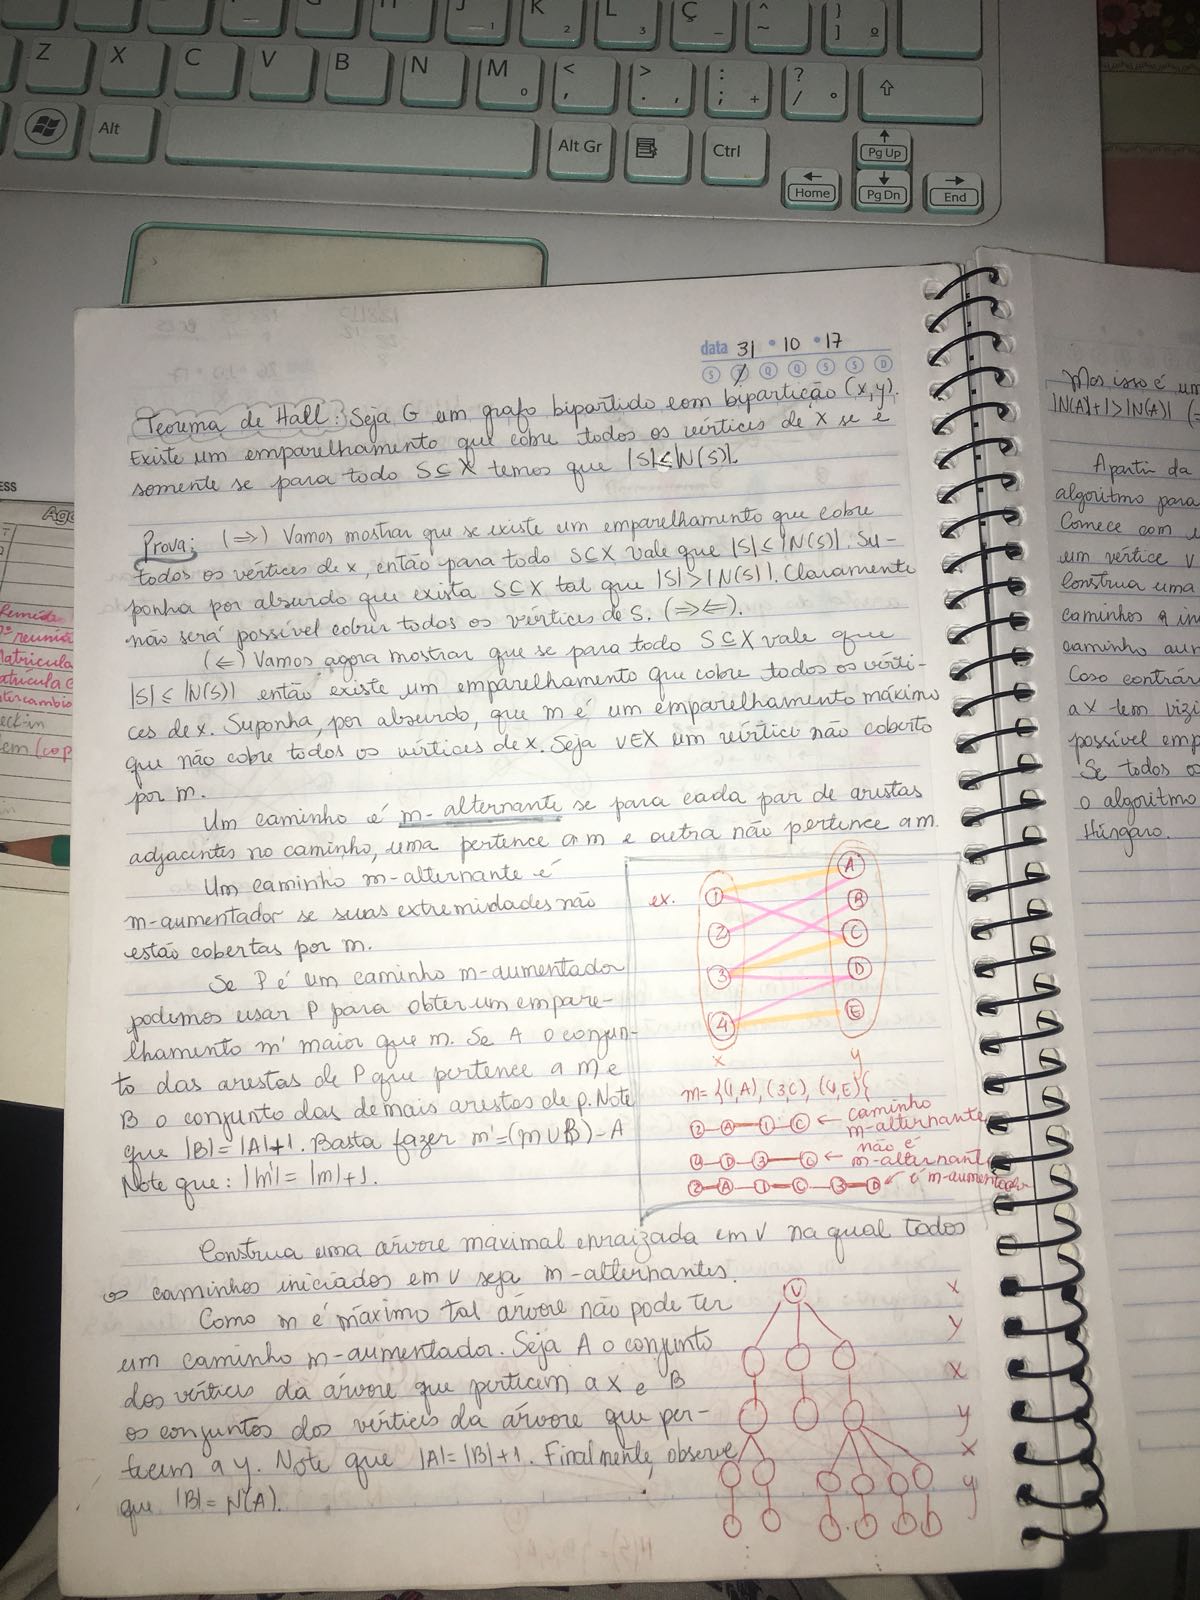 K
L
Ç
Z
X
C
V
B
N
M
Alt
Alt Gr
Ctrl
Pg Up
Home
Pg Dn
End
data 31 • 10 • 17
S T Q Q S S D
Teorema de Hall: Seja G um grafo bipartido com bipartição (x, y).
Existe um emparelhamento que cobre todos os vértices de x se e
somente se para todo S⊆X temos que |S|≤|N(S)|.
Prova: (⇒) Vamos mostrar que se existe um emparelhamento que cobre
todos os vértices de x, então para todo S⊆X vale que |S|≤|N(S)|. Su-
ponha por absurdo que exista S⊆X tal que |S|>|N(S)|. Claramente
não será possível cobrir todos os vértices de S. (⇒⇐).
(⇐) Vamos agora mostrar que se para todo S⊆X vale que
|S|≤|N(S)| então existe um emparelhamento que cobre todos os vérti-
ces de x. Suponha, por absurdo, que m é um emparelhamento máximo
que não cobre todos os vértices de x. Seja V∈X um vértice não coberto
por m.
Um caminho é m-alternante se para cada par de arestas
adjacentes no caminho, uma pertence a m e outra não pertence a m.
Um caminho m-alternante é
m-aumentador se suas extremidades não
estão cobertas por m.
Se P é um caminho m-aumentador
podemos usar P para obter um empare-
lhamento m' maior que m. Se A o conjun-
to das arestas de P que pertence a m e
B o conjunto das demais arestas de p. Note
que |B|=|A|+1. Basta fazer m'=(m∪B)-A
Note que: |m'|=|m|+1.
ex.
1 A
2 B
3 C
4 D
E
x y
m={(1,A), (3C), (4,E)}
2 A 1 C ← caminho
m-alternante
4 D 3 C ← não é
m-alternante
2 A 1 C 3 D ← é m-aumentador
Construa uma árvore maximal enraizada em V na qual todos
os caminhos iniciados em v seja m-alternantes.
Como m é máximo tal árvore não pode ter
um caminho m-aumentador. Seja A o conjunto
dos vértices da árvore que perticem a x e B
os conjuntos dos vértices da árvore que per-
ticem a y. Note que |A|=|B|+1. Finalmente, observe
que |B|=N(A).
V
x
y
x
y
x
y
Mas isso é um
|N(A)|+1>|N(A)|
A partir da
algoritmo para
Comece com
um vértice v
Construa uma
caminhos q in
caminho aum
Caso contrár
a X tem vizi
possível emp
Se todos os
o algoritmo
Húngaro.